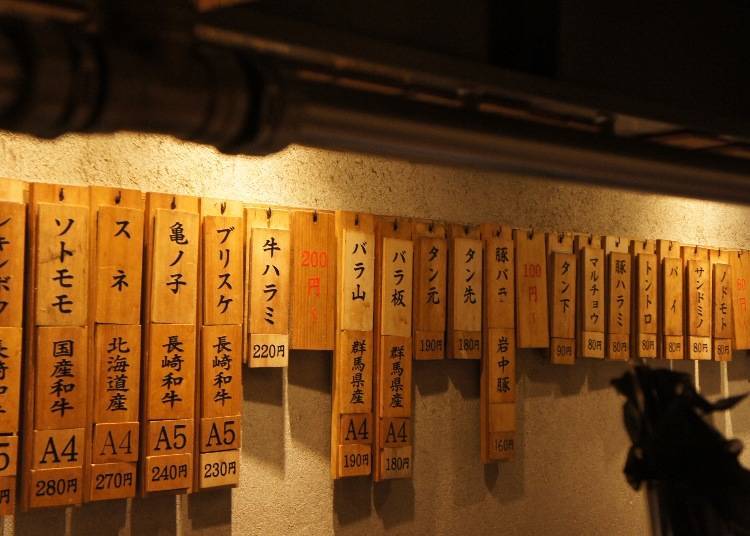 ソトモモ
国産和牛
A4
280円
スネ
北海道産
A4
270円
亀ノ子
長崎和牛
A5
240円
ブリスケ
長崎和牛
A5
230円
牛ハラミ
220円
200円
バラ山
群馬県産
A4
190円
バラ板
群馬県産
A4
180円
タン元
190円
タン先
180円
豚バラ
岩中豚
160円
100円
タン下
90円
マルチョウ
80円
豚ハラミ
80円
トントロ
80円
パイ
80円
サンドミノ
80円
ノドモト
80円